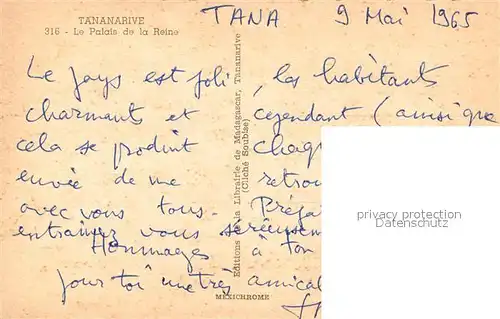 TANANARIVE
316 - Le Palais de la Reine
TANA 9 Mai 1965
Le pays est joli, les habitants
charmants et cependant (ainsi que
cela se produit chaq
envie de me retrou
avec vous tous. Prépa
entrainez vous sérieusem
Hommages à ton
pour toi une très amical
Editions de la Librairie de Madagascar, Tananarive
(Cliché Soubise)
MEXICHROME
privacy protection
Datenschutz